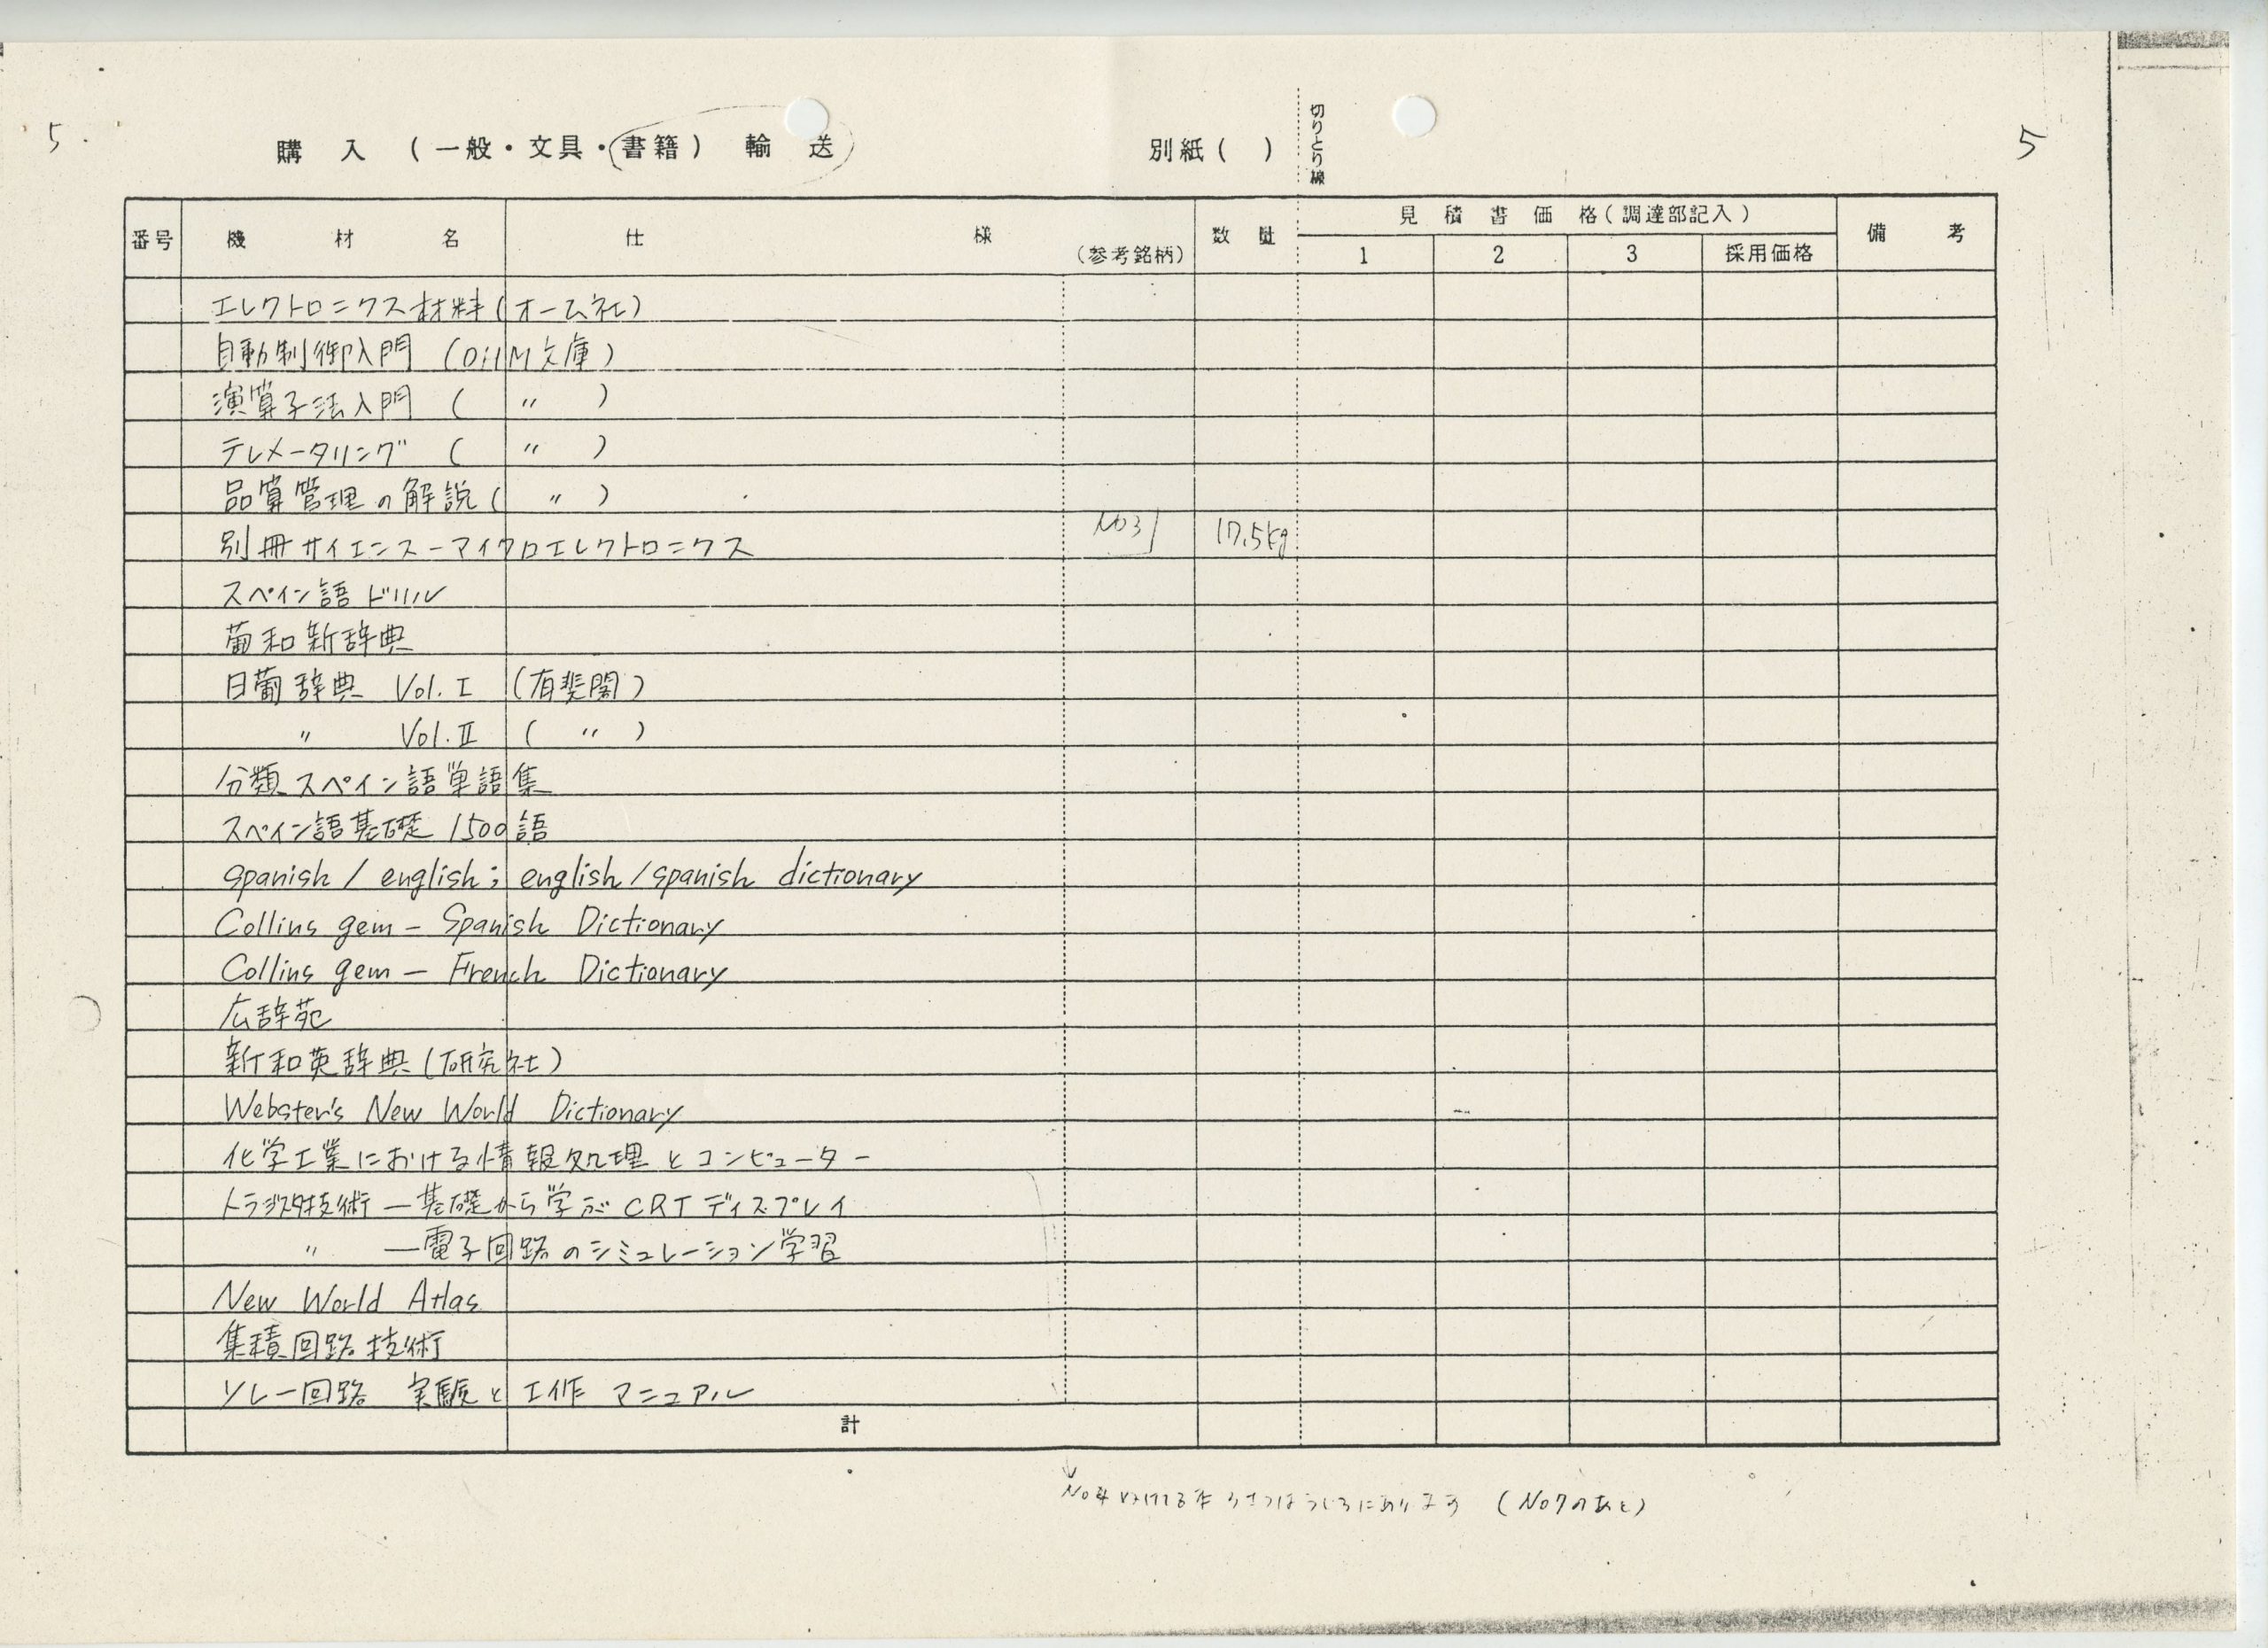 5.
購入（一般・文具・書籍）輸送
別紙（ ）
切りとり線
5
番号 機材名 仕様 （参考銘柄） 数量 見積書価格（調達部記入） 備考
1 2 3 採用価格
エレクトロニクス材料（オーム社）
自動制御入門 （OHM文庫）
演算子法入門 （ 〃 ）
テレメータリング （ 〃 ）
品算管理の解説（ 〃 ）
別冊サイエンスーマイクロエレクトロニクス No3 17.5kg
スペイン語ドリル
葡和新辞典
日葡辞典 Vol.I （有斐閣）
〃 Vol.II （ 〃 ）
分類スペイン語単語集
スペイン語基礎1500語
spanish / english; english/spanish dictionary
Collins gem - Spanish Dictionary
Collins gem - French Dictionary
広辞苑
新和英辞典（研究社）
Webster's New World Dictionary
化学工業における情報処理とコンピューター
トラジスタ技術 ―基礎から学ぶCRTディスプレイ
〃 ―電子回路のシミュレーション学習
New World Atlas
集積回路技術
リレー回路 実験と工作マニュアル
計
No4 うしろにあります （No7のあと）